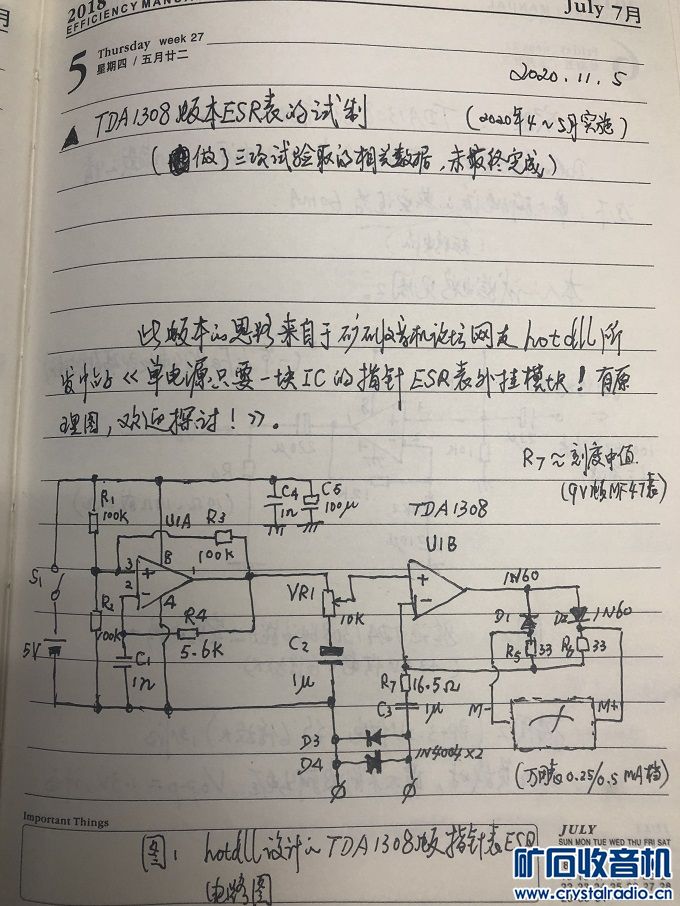 2018
EFFICIENCY MANUAL
July 7月
5 Thursday week 27
星期四 / 五月廿二
2020.11.5
▲ TDA1308版本ESR表的试制 (2020年4~5月实施)
(做了三项试验取的相关数据,未最终完成)
此版本的思路来自于矿石收音机论坛网友hotdll所
发帖《单电源只要一块IC的指针ESR表外挂模块!有原
理图,欢迎探讨!》。
R7≈刻度中值
(9V档MF47表)
R1
100K
U1A
R3
100K
C4
1n
C5
100μ
TDA1308
U1B
S1
5V
R2
100K
3
2
8
1
4
R4
5.6K
C1
1n
VR1
10K
C2
1μ
R7
16.5Ω
C3
1μ
1N60
D1
D2
1N60
R5
33
R6
33
M-
M+
D3
D4
1N4004×2
(万用表0.25/0.5mA档)
Important Things
图1 hotdll设计的TDA1308版指针表ESR
电路图
JULY
SUN MON TUE WED THU FRI SAT
矿石收音机
www.crystalradio.cn